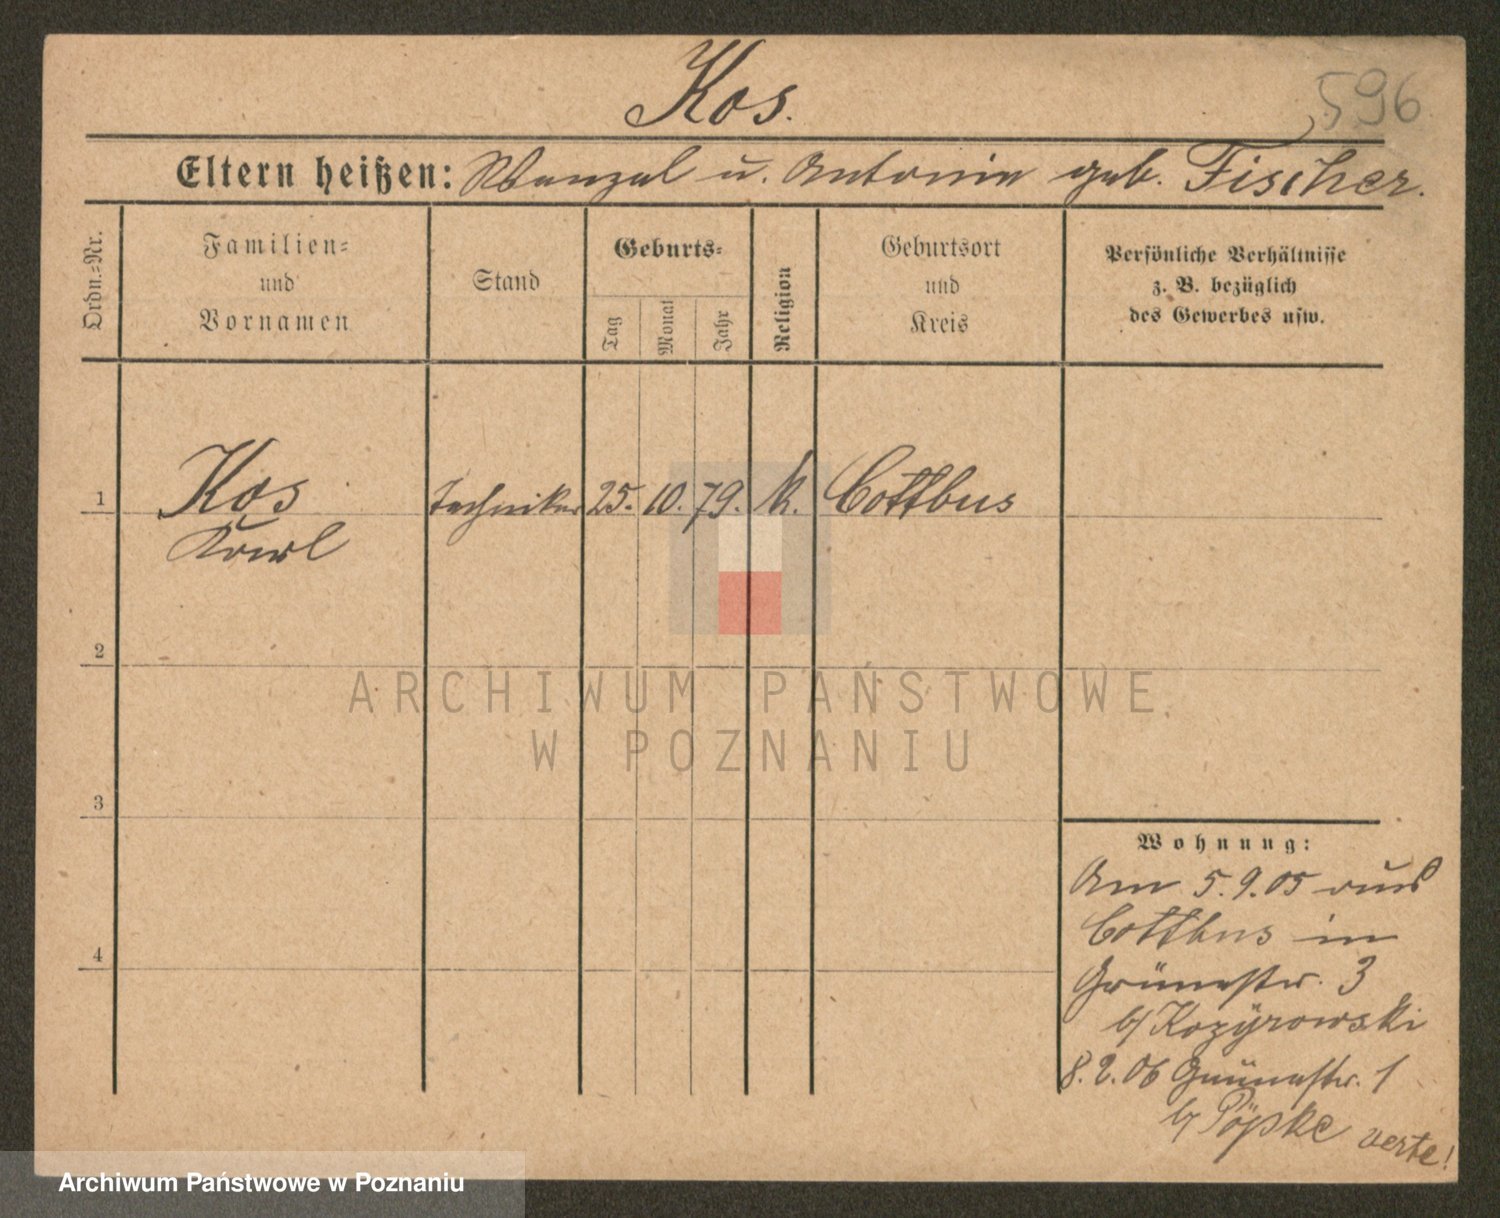 Kos.
596
Eltern heißen: Wenzel u. Antonie geb. Fischer.
Ordn.=Nr.
Familien=
und
Vornamen
Stand
Geburts=
Tag
Monat
Jahr
Religion
Geburtsort
und
Kreis
Persönliche Verhältnisse
z. B. bezüglich
des Gewerbes usw.
1
Kos
Karl
Techniker
25. 10. 79.
k.
Cottbus
2
ARCHIWUM PAŃSTWOWE
W POZNANIU
3
Wohnung:
Am 5.9.05 aus
Cottbus in
Grünestr. 3
b/ Kozyrowski
4
8.2.06 Grünestr. 1
b/ Pöpke
verte!
Archiwum Państwowe w Poznaniu